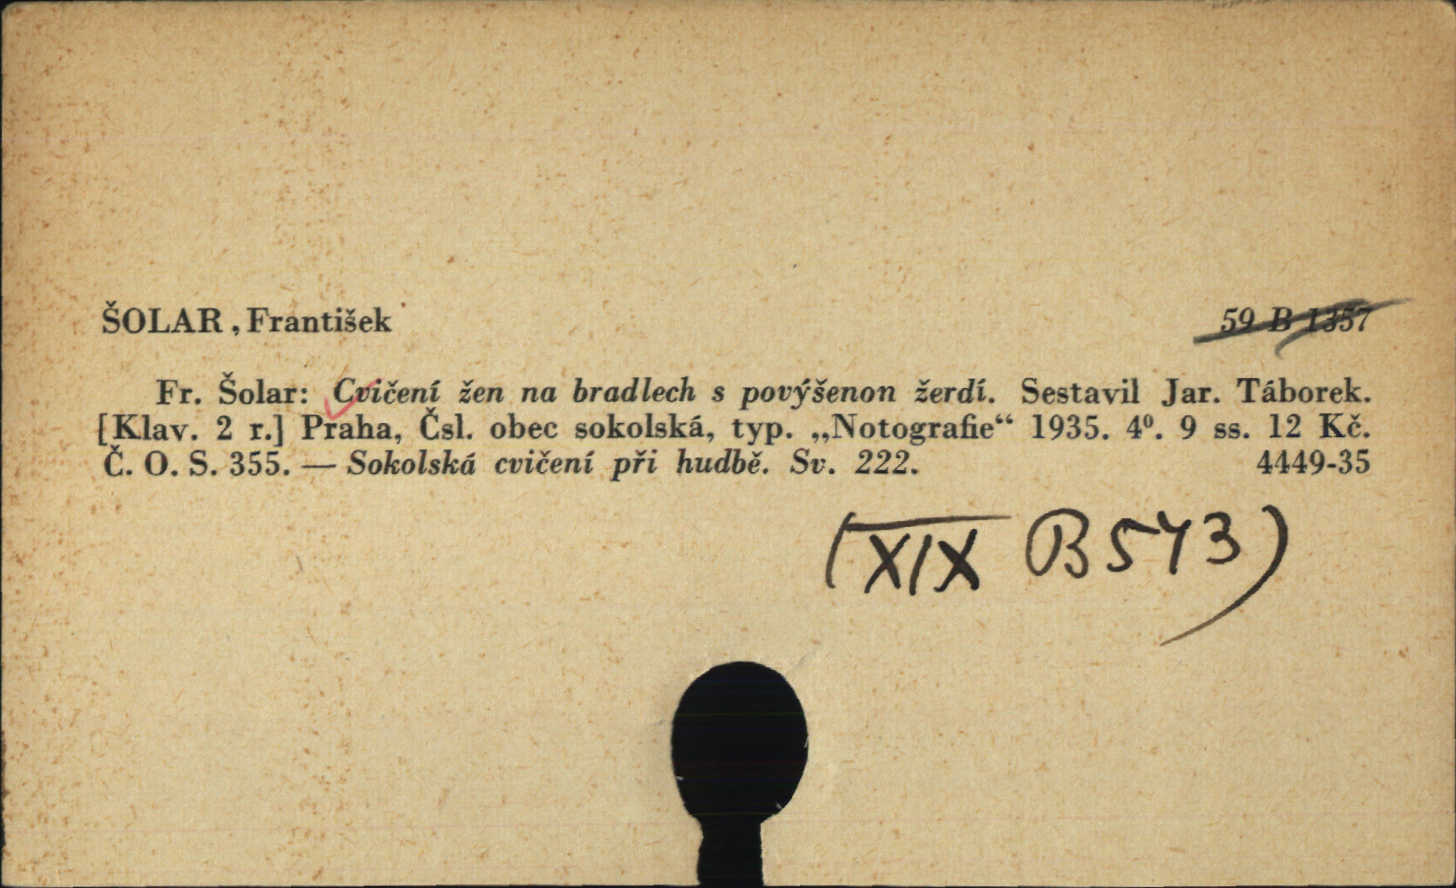 ŠOLAR, František
59 B 1357
Fr. Šolar: Cvičení žen na bradlech s povýšenon žerdí. Sestavil Jar. Táborek.
[Klav. 2 r.] Praha, Čsl. obec sokolská, typ. „Notografie“ 1935. 4⁰. 9 ss. 12 Kč.
Č. O. S. 355. — Sokolská cvičení při hudbě. Sv. 222. 4449-35
(XIX B 543)